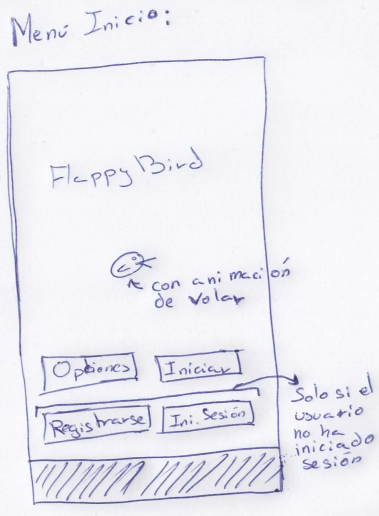 Menú Inicio:
FlappyBird
con animación
de volar
Opciones
Iniciar
Registrarse
Ini. Sesión
Solo si el
usuario
no ha
iniciado
sesión